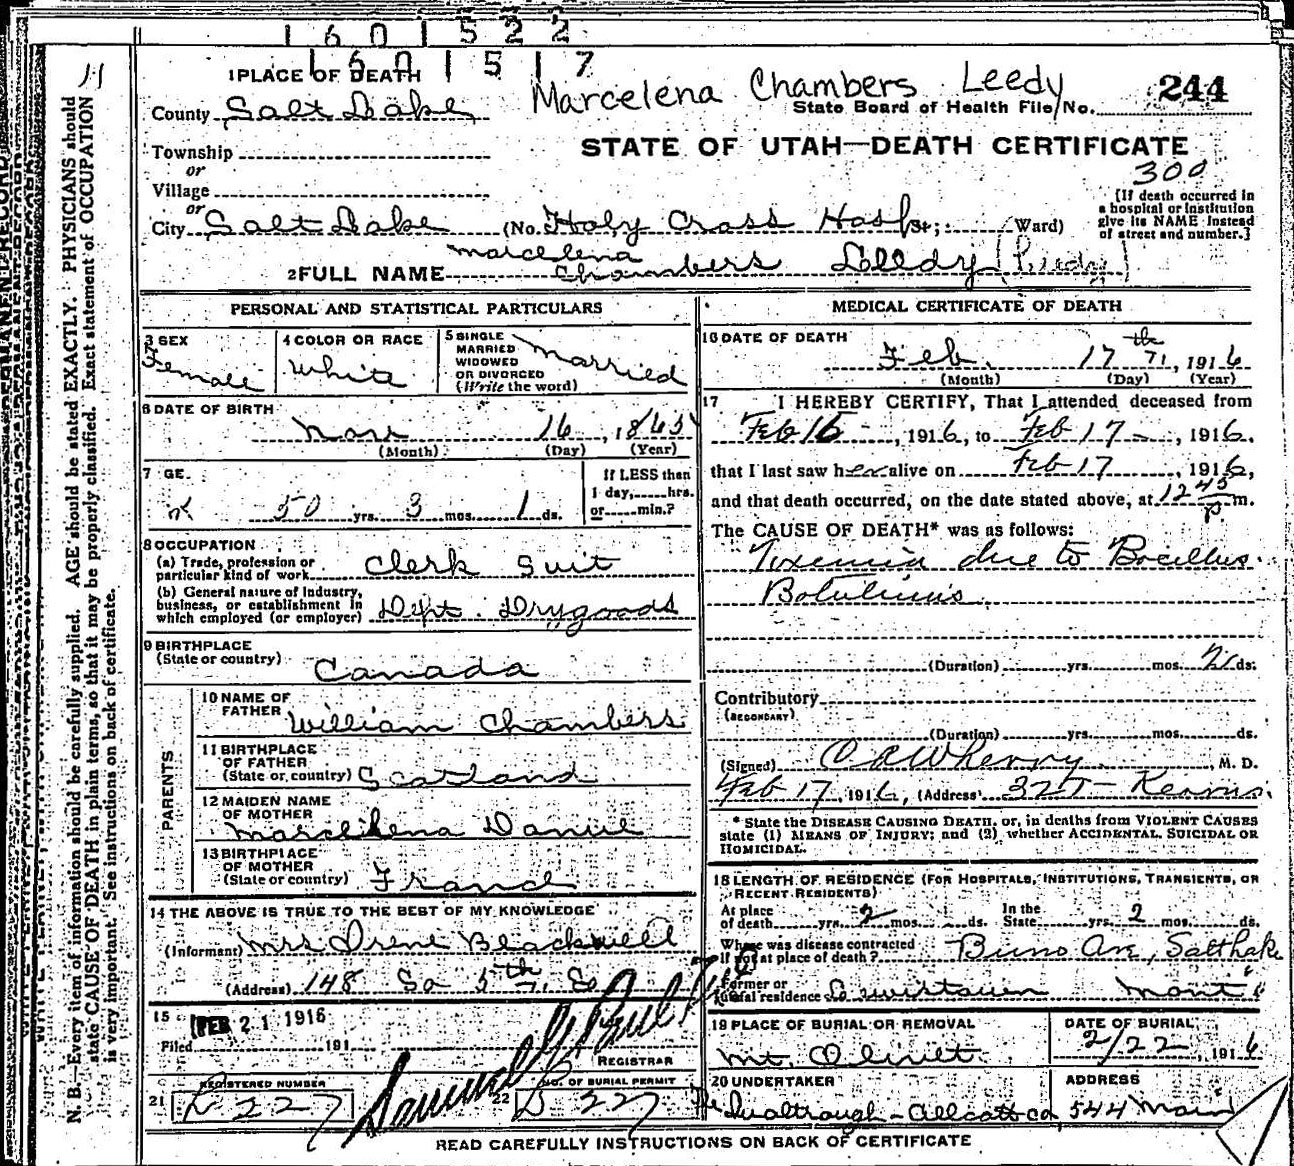 1 6 0 1 5 2 2
1 6 0 1 5 1 7
11
1 PLACE OF DEATH
Marcelena Chambers Leedy
244
County Salt Lake
State Board of Health File No.
Township
or
STATE OF UTAH—DEATH CERTIFICATE
300
Village
or
City Salt Lake (No. Holy Cross Hosp St; Ward)
[If death occurred in
a hospital or institution
give its NAME instead
of street and number.]
Marcelena
2 FULL NAME Chambers Leedy
PERSONAL AND STATISTICAL PARTICULARS
3 SEX
Female
4 COLOR OR RACE
White
5 SINGLE
MARRIED
WIDOWED
OR DIVORCED
(Write the word)
Married
6 DATE OF BIRTH
16, 1865
(Month) (Day) (Year)
7 GE
50 yrs. 3 mos. 1 ds.
If LESS than
1 day, hrs.
or min.?
8 OCCUPATION
(a) Trade, profession or
particular kind of work Clerk Suit
(b) General nature of industry,
business, or establishment in
which employed (or employer) Dept. Drygoods
9 BIRTHPLACE
(State or country) Canada
PARENTS
10 NAME OF
FATHER William Chambers
11 BIRTHPLACE
OF FATHER
(State or country) Scotland
12 MAIDEN NAME
OF MOTHER
13 BIRTHPLACE
OF MOTHER
(State or country) France
14 THE ABOVE IS TRUE TO THE BEST OF MY KNOWLEDGE
(Informant) Mrs Irene Blackwell
(Address) 148 So 5th E
15
FEB 21 1916
Filed 191
REGISTRAR
REGISTERED NUMBER
21 227
NO. OF BURIAL PERMIT
22 B 227
MEDICAL CERTIFICATE OF DEATH
16 DATE OF DEATH
Feb. 17th, 1916
(Month) (Day) (Year)
17 I HEREBY CERTIFY, That I attended deceased from
Feb 16, 1916, to Feb 17, 1916,
that I last saw her alive on Feb 17, 1916,
and that death occurred, on the date stated above, at 12 45 P m.
The CAUSE OF DEATH* was as follows:
Toxemia due to Bacillus
Botulinus
(Duration) yrs. mos. 2 ds.
Contributory
(SECONDARY)
(Duration) yrs. mos. ds.
(Signed) M. D.
Feb 17, 1916, (Address) Kearns.
* State the DISEASE CAUSING DEATH, or, in deaths from VIOLENT CAUSES
state (1) MEANS OF INJURY; and (2) whether ACCIDENTAL, SUICIDAL OR
HOMICIDAL.
18 LENGTH OF RESIDENCE (FOR HOSPITALS, INSTITUTIONS, TRANSIENTS, OR
RECENT RESIDENTS)
At place
of death yrs. 2 mos. ds.
In the
State yrs. 2 mos. ds.
Where was disease contracted
if not at place of death? Ave, Salt Lake
Former or
usual residence Lewistown Mont
19 PLACE OF BURIAL OR REMOVAL
Mt. Olivet
DATE OF BURIAL
2/22, 1916
20 UNDERTAKER
ADDRESS
544 Main
READ CAREFULLY INSTRUCTIONS ON BACK OF CERTIFICATE
N. B.—Every item of information should be carefully supplied. AGE should be stated EXACTLY. PHYSICIANS should
state CAUSE OF DEATH in plain terms, so that it may be properly classified. Exact statement of OCCUPATION
is very important. See instructions on back of certificate.